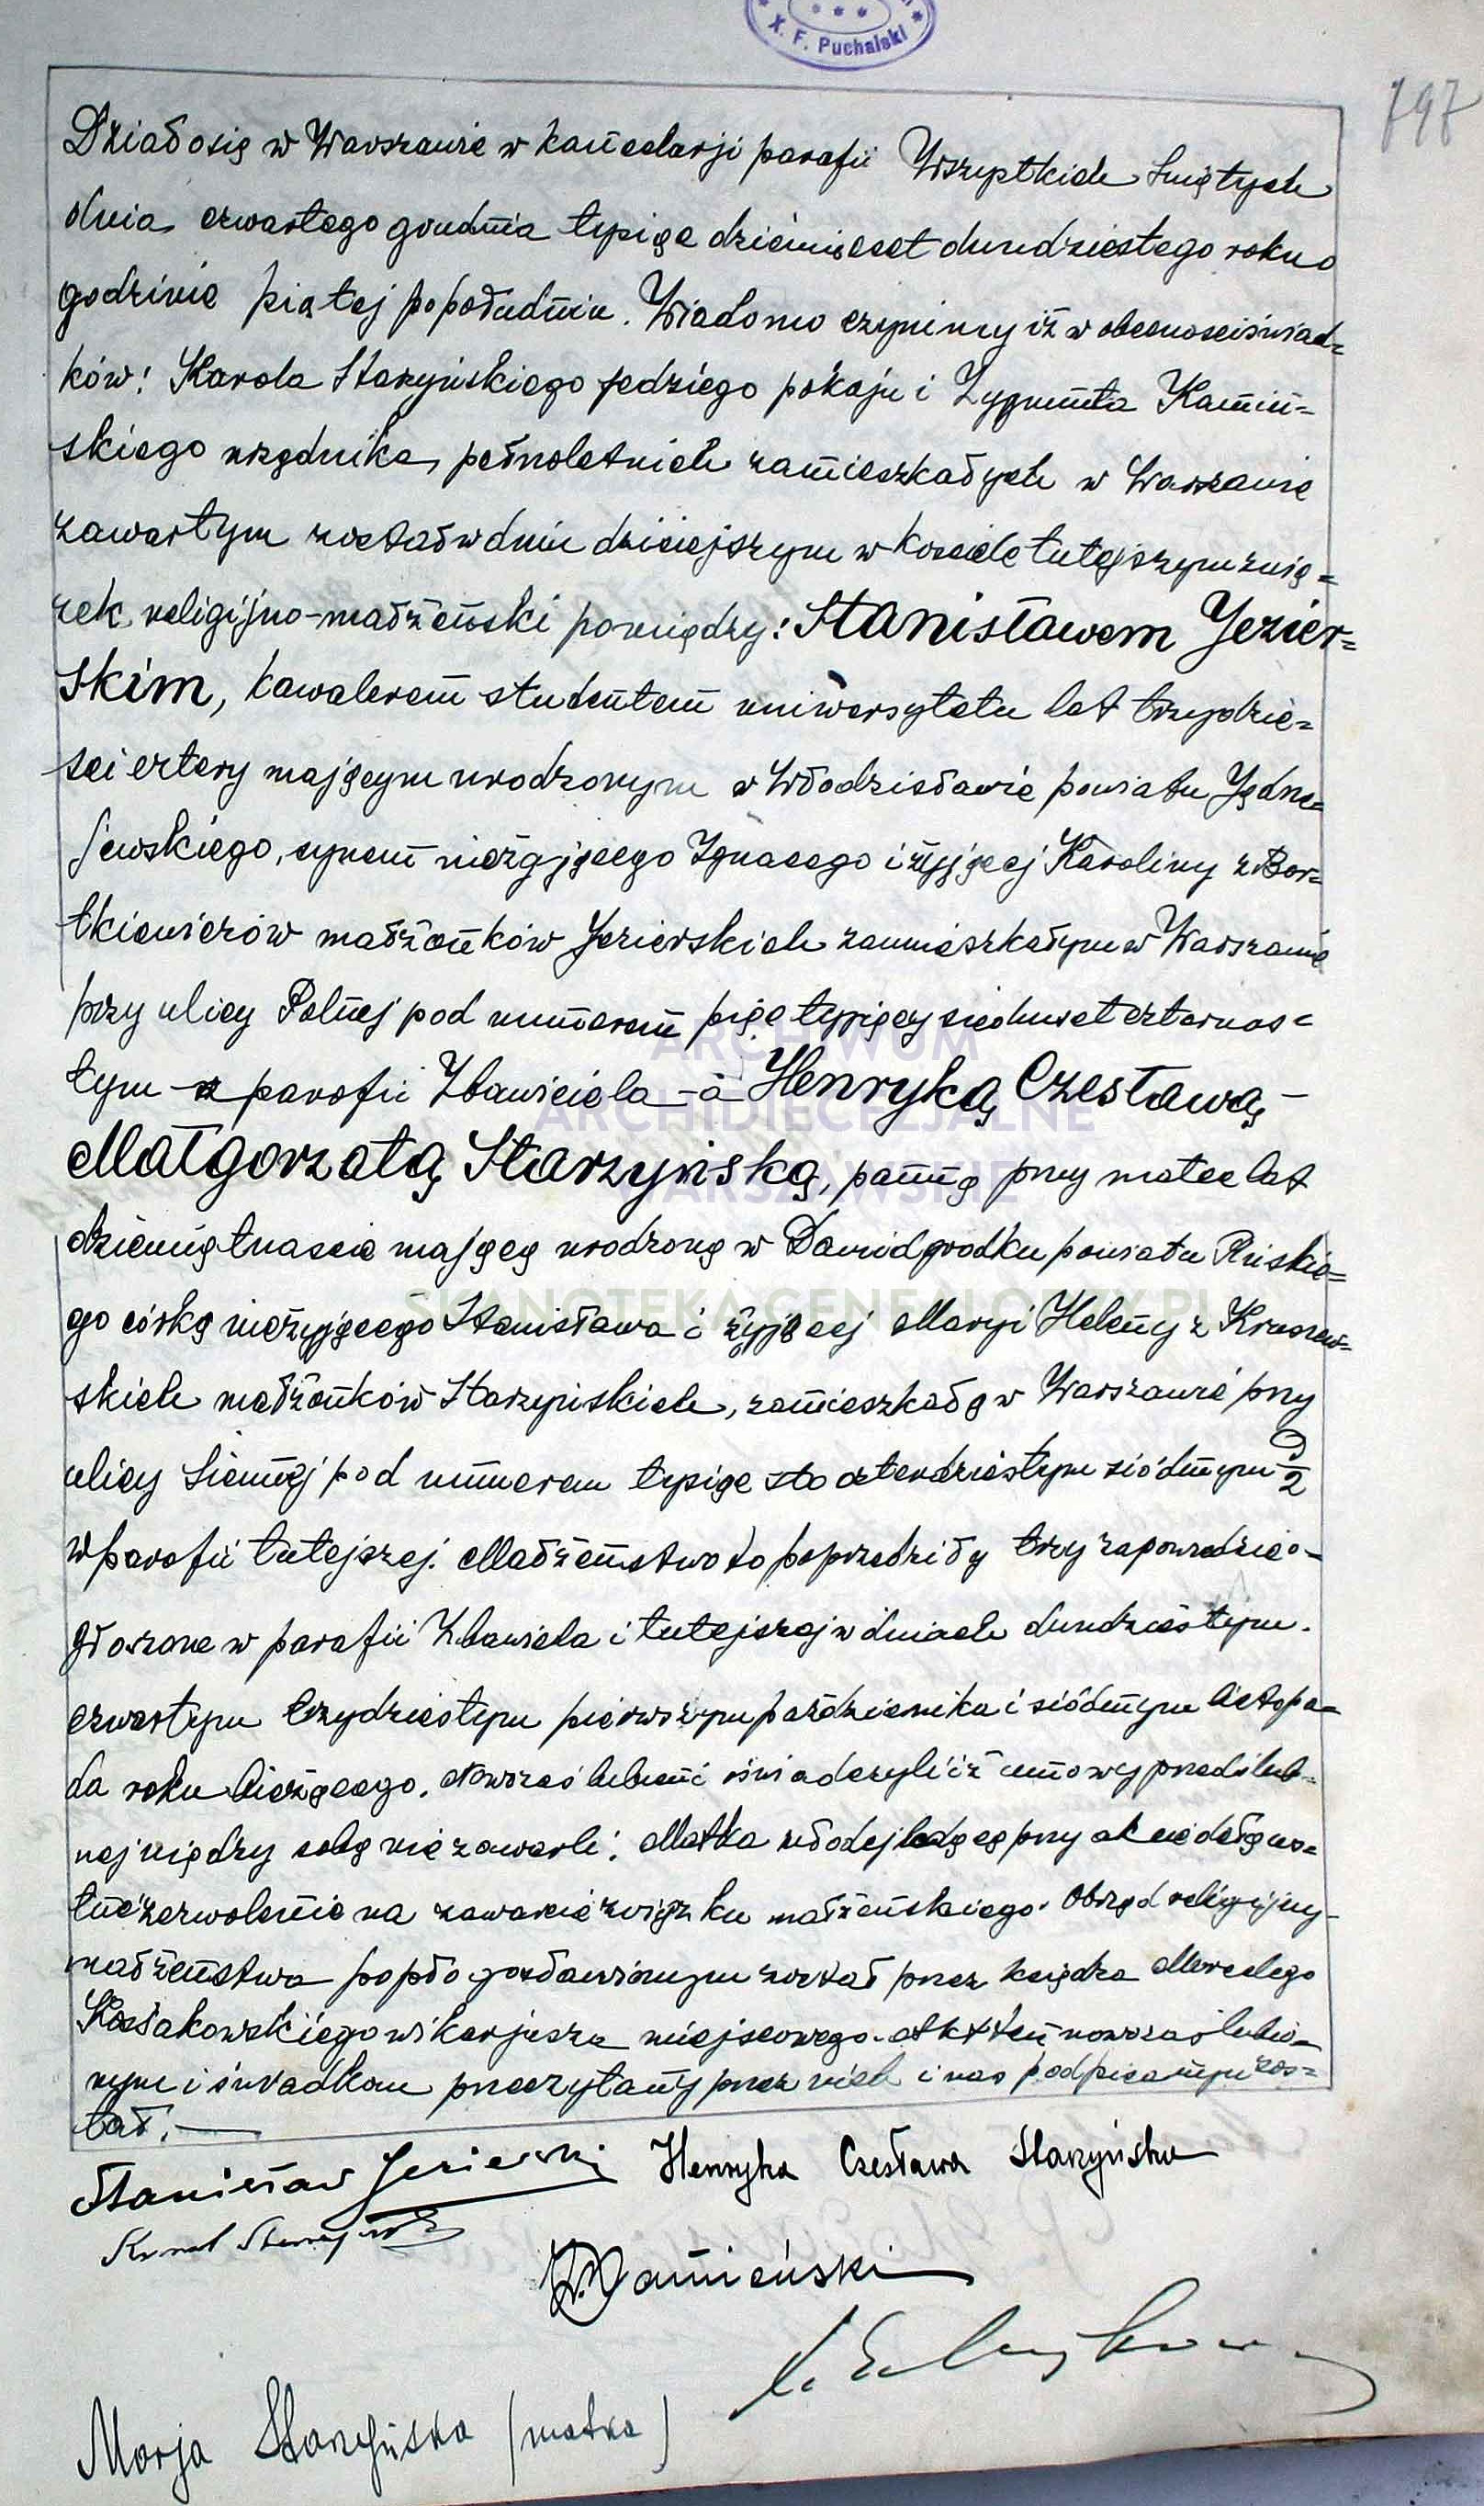 X. F. Puchalski
797
Działo się w Warszawie w kancelarji parafii Wszystkich Świętych
dnia czwartego grudnia tysiąc dziewięćset dwudziestego roku o
godzinie piątej popołudniu. Wiadomo czynimy iż w obecności świad=
ków: Karola Starzyńskiego sędziego pokoju i Zygmunta Kamiń=
skiego urzędnika, pełnoletnich zamieszkałych w Warszawie
zawartym został w dniu dzisiejszym w kościele tutejszym zwią=
zek religijno-małżeński pomiędzy: Stanisławem Jezier=
skim, kawalerem studentem uniwersytetu lat trzydzie=
ści cztery mającym urodzonym w Włodzisławie powiatu Jędrze=
jewskiego, synem nieżyjącego Ignacego i żyjącej Karoliny z Bor=
tkiewiczów małżonków Jezierskich zamieszkałym w Warszawie
przy ulicy Polnej pod numerem pięć tysięcy siedmset czternas=
tym w parafii Zbawiciela - a Henryką Czesławą -
Małgorzatą Starzyńską, panną przy matce lat
dziewiętnaście mającą urodzoną w Dawidgródku powiatu Pińskie=
go córką nieżyjącego Stanisława i żyjącej Maryi Heleny z Kraszew=
skich małżonków Starzyńskich, zamieszkałą w Warszawie przy
ulicy Siennej pod numerem tysiąc sto czterdziestym siódmym D/2
w parafii tutejszej. Małżeństwo to poprzedziły trzy zapowiedzie o=
głoszone w parafii Zbawiciela i tutejszej w dniach dwudziestym
czwartym trzydziestym pierwszym października i siódmym listopa=
da roku bieżącego. Nowozaślubieni oświadczyli iż umowy przedślub=
nej między sobą nie zawarli. Matka młodej będąc przy akcie dała us=
tne zezwolenie na zawarcie związku małżeńskiego. Obrzęd religijny
małżeństwa pobłogosławionym został przez księdza Marcelego
Kossakowskiego wikarjusza miejscowego. Akt ten nowozaślubio=
nym i świadkom przeczytany przez nich i nas podpisanym zos=
tał.
Stanisław Jezierski Henryka Czesława Starzyńska
Karol Starzyński
Z. Kamieński
Marja Starzyńska (matka)
ARCHIWUM
ARCHIDIECEZJALNE
WARSZAWSKIE
SKANOTEKA.GENEALODZY.PL